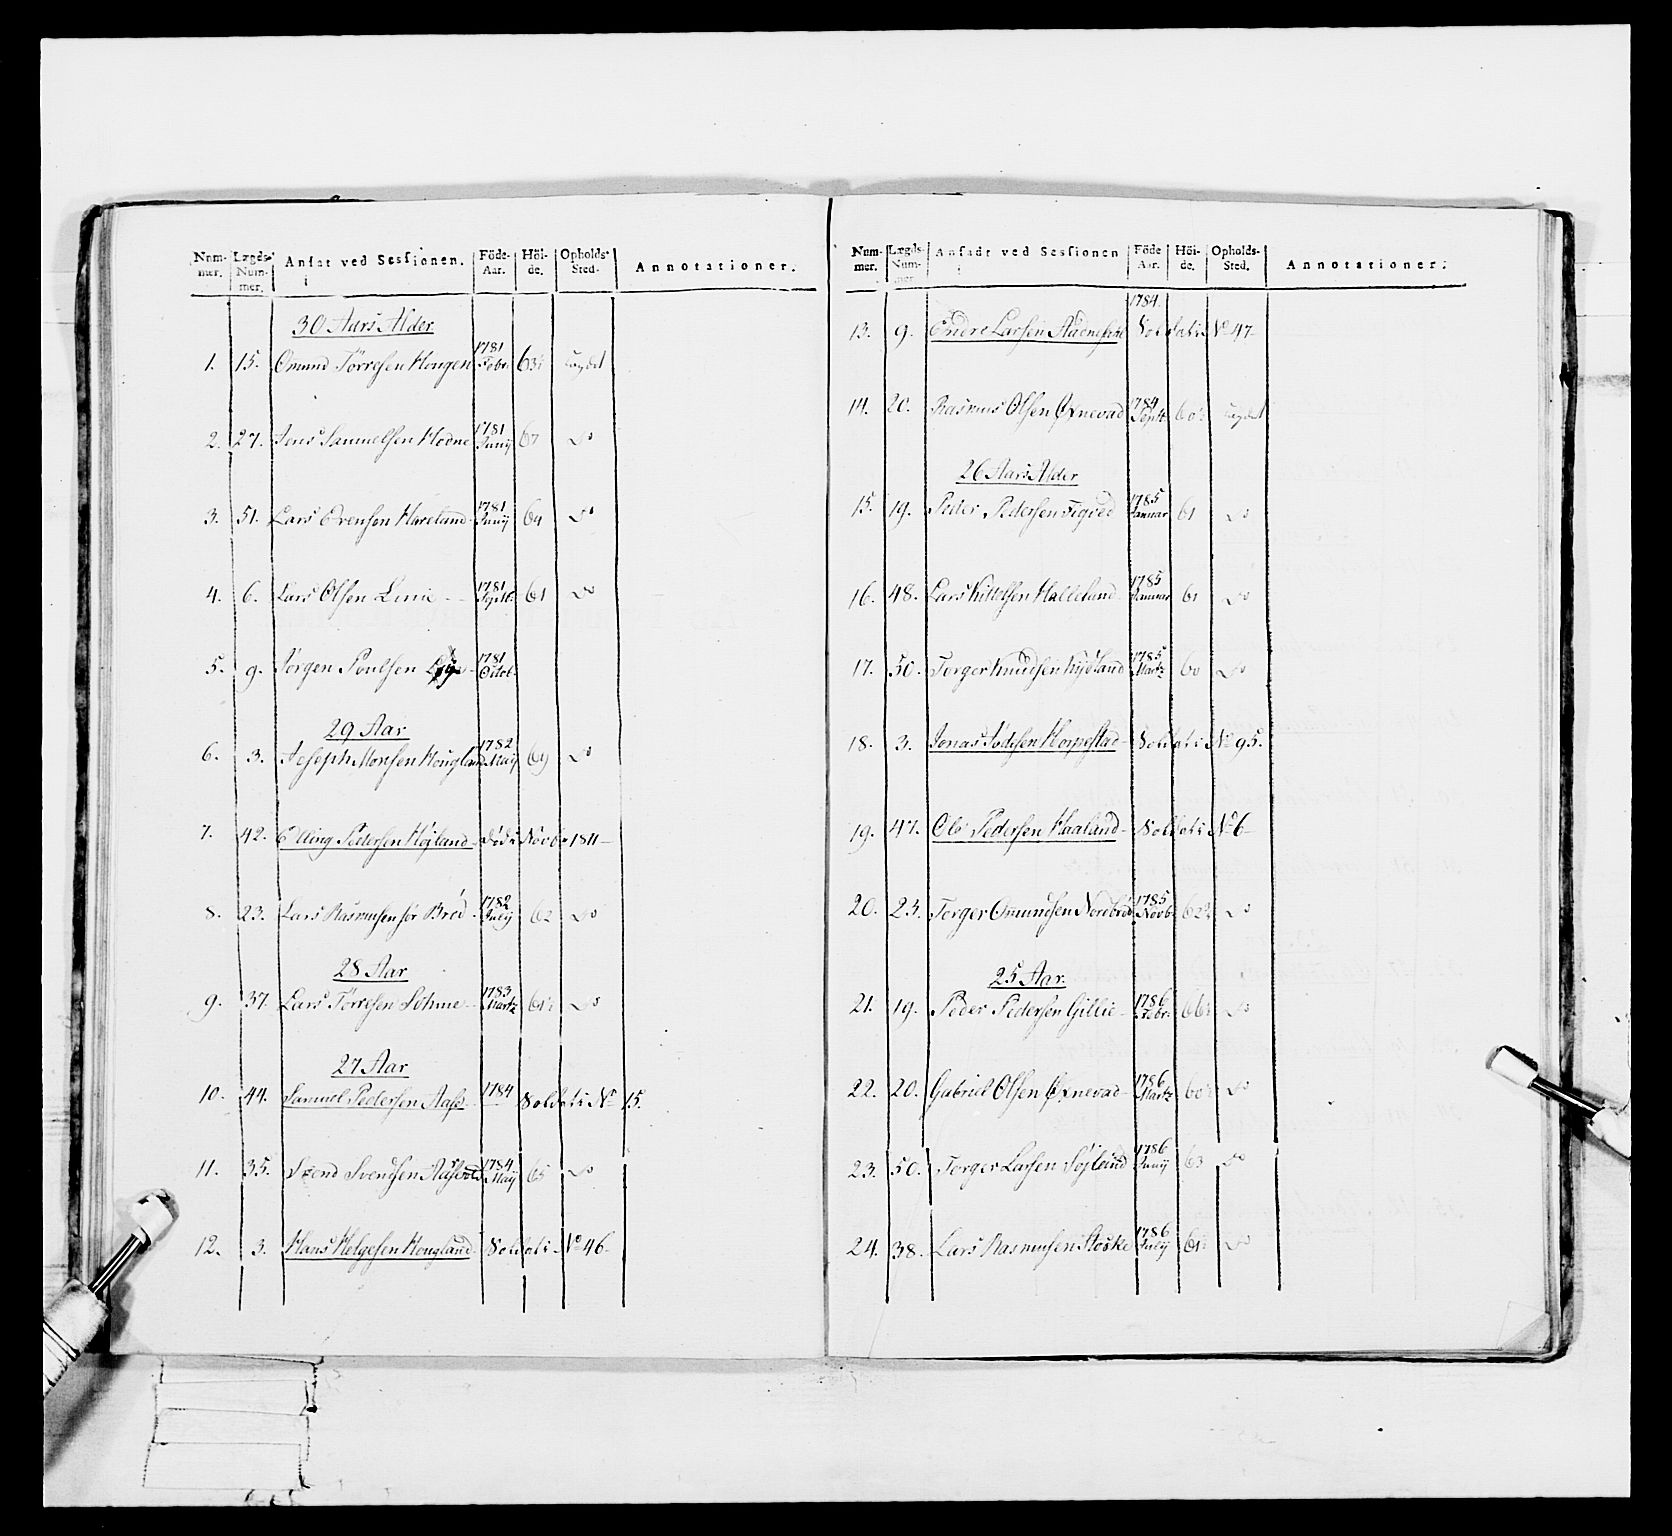 Num- Lægds- Ansat ved Sessionen. Föde- Höi- Opholds- Annotationer.
mer. Num- Aar. de. Sted.
mer.
30 Aars Alder
1. 15. Omund Törresen Hougen 1781 Febr. 63½ Lægdet
2. 27. Jens Samuelsen Hodne 1781 Junij 67 Do
3. 51. Lars Evensen Hareland 1781 Junij 64 Do
4. 6. Lars Olsen Linie 1781 Septb. 61 Do
5. 9. Jörgen Poulsen 1781 Octob.
29 Aar
6. 3. Joseph Monsen Hougland 1782 Maij 64 Do
7. 42. Elling Pedersen Højland döde Novbr 1811
8. 23. Lars Rasmusen sör Bröd 1782 Julij 62 Do
28 Aar
9. 37. Lars Törresen Söhme 1783 Martz 61½ Do
27 Aar
10. 44. Samuel Pedersen Aass 1784 Soldat No 15.
11. 35. Svend Svendsen 1784 Maij 65 Do
12. 3. Hans Helgesen Hougland Soldat No 46
Num- Lægds- Ansadt ved Sessionen Föde Höi- Opholds- Annotationer.
mer. Num- Aar. de. Sted.
mer.
13. 9. Endre Larsen 1784. Soldat No 47
14. 20. Rasmus Olsen Øxnevad 1784 Septb. 60½ Lægdet
26 Aars Alder
15. 19. Peder Pedersen Figved 1785 Januar 61 Do
16. 48. Lars Kittelsen Halleland 1785 Januar 61 Do
17. 50. Torger Knudsen Kydland 1785 Martz 60 Do
18. 3. Jonas Horpestad Soldat No 95.
19. 47. Ole Pedersen Haaland Soldat No 6
20. 23. Torger Omundsen Nordbröd 1785 Novb. 62½ Do
25 Aar
21. 19. Peder Pedersen Gillie 1786 Febr. 66½ Do
22. 20. Gabriel Olsen Øxnevad 1786 Martz 60½ Do
23. 50. Torger Larsen Söjland 1786 Junij 63 Do
24. 38. Lars Rasmusen Stöske 1786 Julij 61½ Do